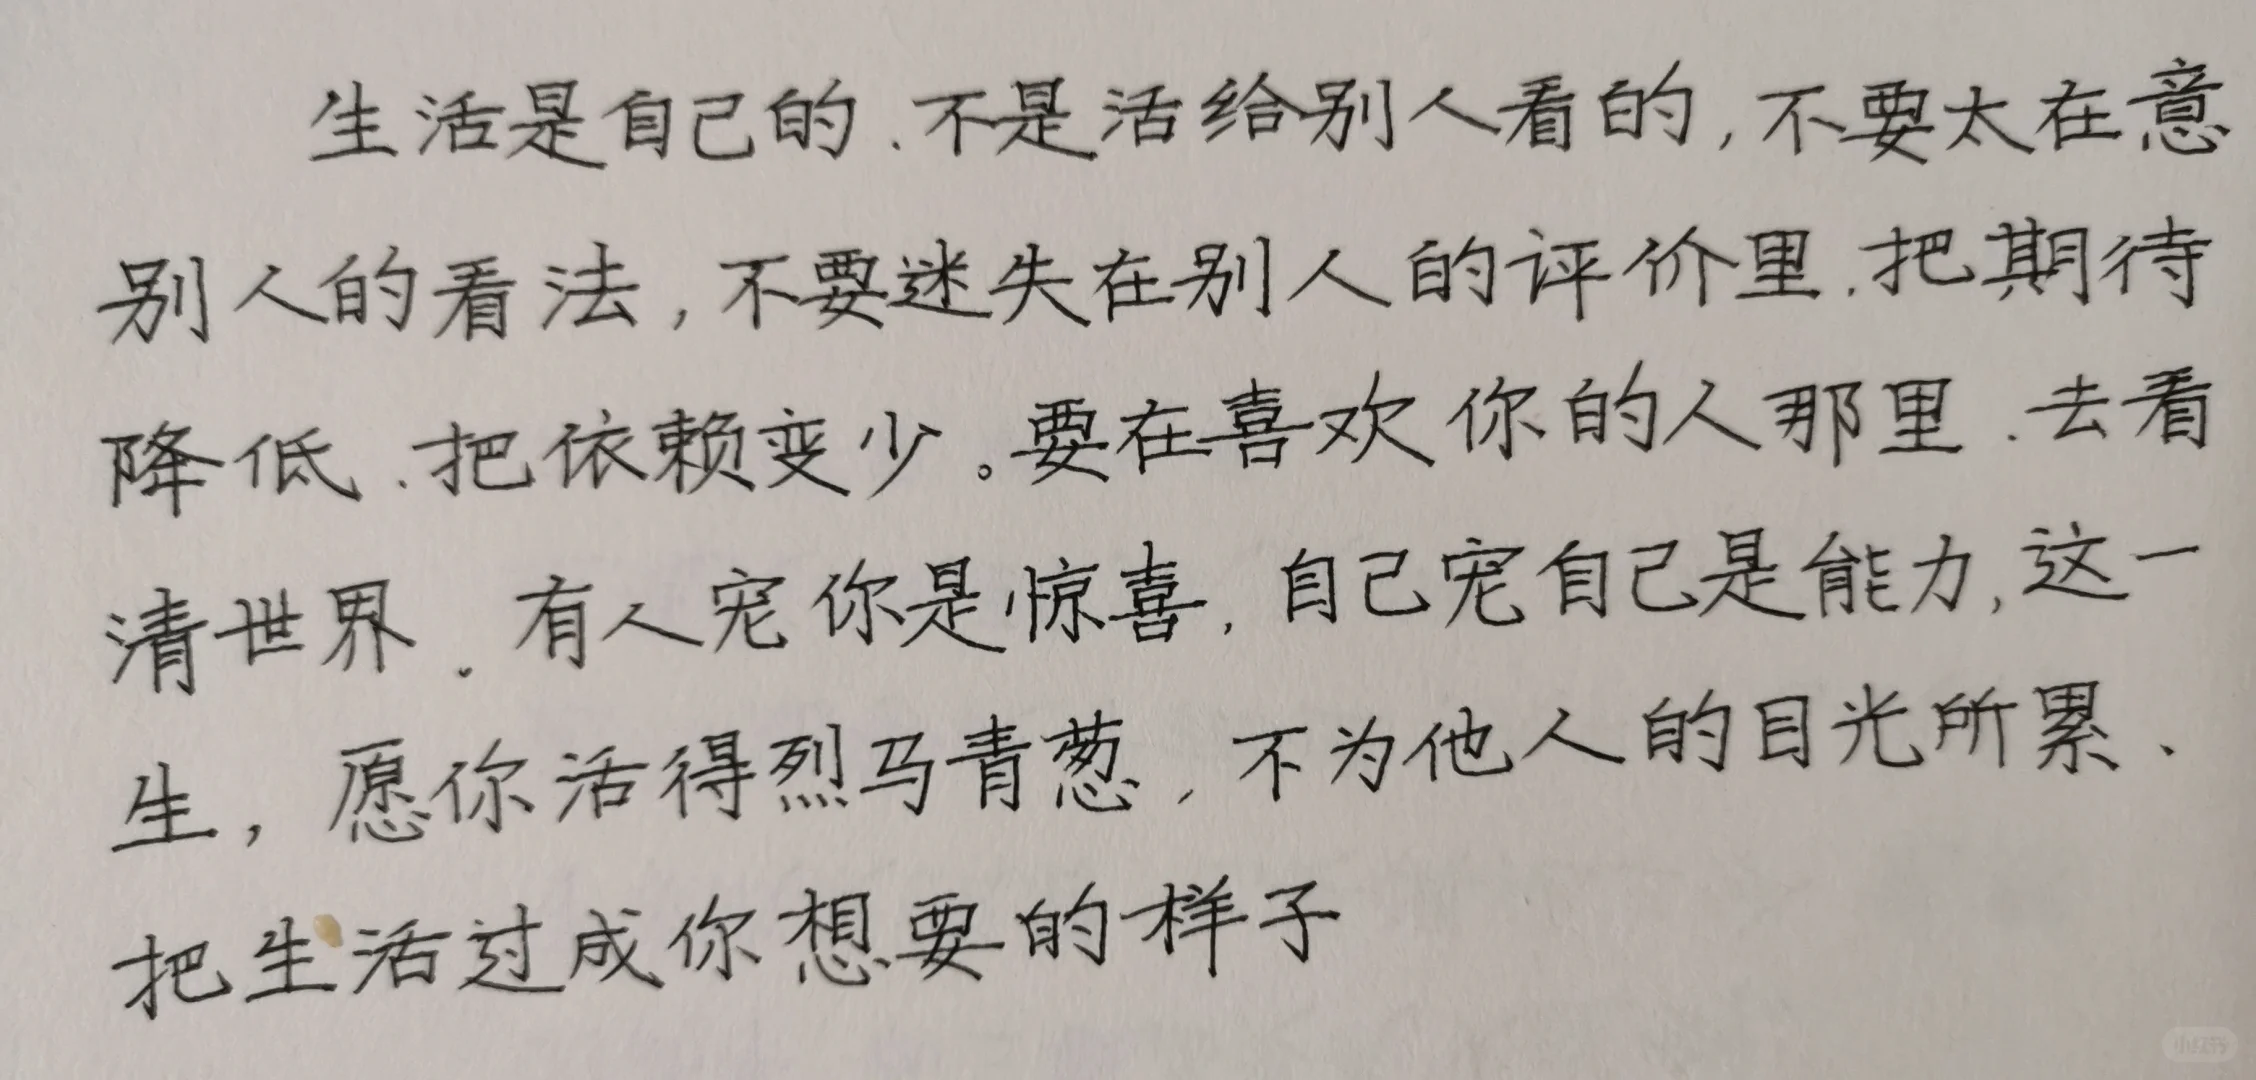 生活是自己的、不是活给别人看的,不要太在意
别人的看法,不要迷失在别人的评价里、把期待
降低、把依赖变少。要在喜欢你的人那里、去看
清世界、有人宠你是惊喜,自己宠自己是能力,这一
生,愿你活得烈马青葱,不为他人的目光所累、
把生活过成你想要的样子
小红书